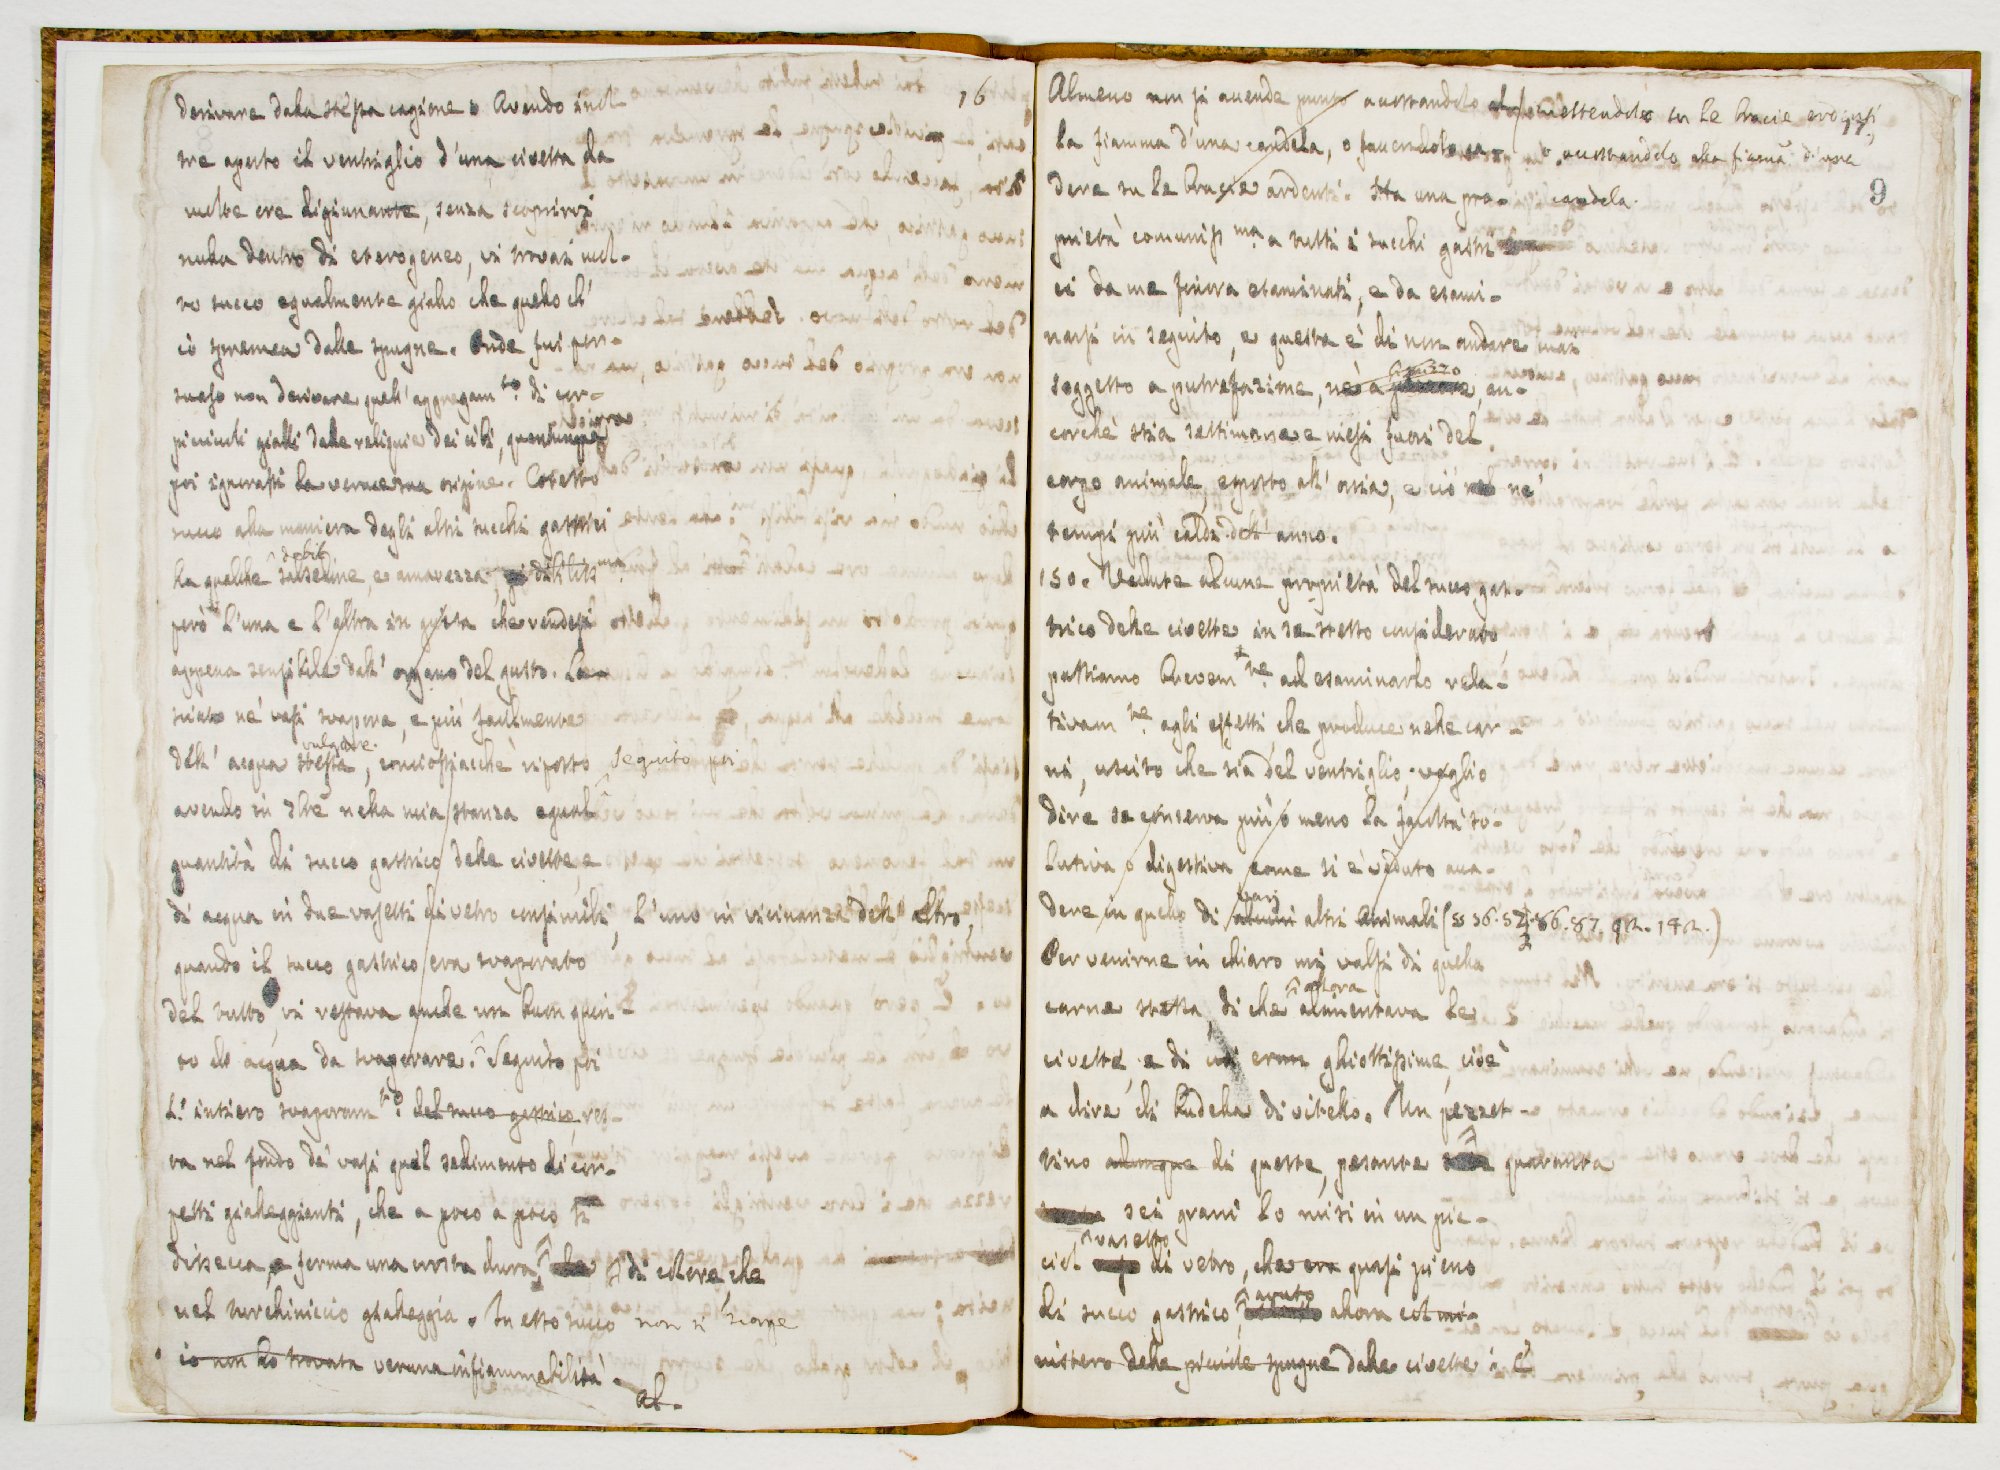 16
derivare dalla stessa cagione. Avendo inol-
tre aperto il ventriglio d'una civetta da
molte ore digiunante, senza scoprirvi
nulla dentro di eterogeneo, vi trovai mol-
to succo egualmente giallo che quello ch'
io spremea dalle spugne. Onde fui per-
suaso non derivare quell'aggregam.to di cor-
picciuoli gialli dalle reliquie dei cibi, quantunque
poi ignorassi la verace sua origine. Cotesto
succo alla maniera degli altri succhi gastrici
debil
ha qualche salsedine, e amarezza,
però l'una e l'altra in guisa che rendesi
appena sensibile dall'organo del gusto. La-
sciato ne' vasi svapora, e più facilmente
vulgare
dell'acqua stessa, conciossiacchè riposto seguito poi
avendo in state nella mia stanza egual
quantità di succo gastrico delle civette, e
di acqua in due vasetti di vetro consimili, l'uno in vicinanza dell'altro,
quando il succo gastrico era svaporato
del tutto, vi restava anche un buon quar-
to di acqua da svaporare. Seguito poi
l'intiero svaporam.to del succo gastrico, res-
ta nel fondo de' vasi quel sedimento di cor-
petti gialleggianti, che a poco a poco si
dissecca, e forma una crosta dura, di colore, che
nel turchiniccio gialleggia. In esso succo non si scorge
io non ho trovata veruna infiammabilità.
Al-
9
Almeno non si accende punto accostandolo mettendolo su le bracie
la fiamma d'una candela, o facendolo ca- o accostandolo alla fiamma d'una
dere su le bragie ardenti. Ha una pro- candela
prietà comuniss.ma a tutti i succhi gastri
ci da me finora esaminati, e da esami-
narsi in seguito, e questa è di non andare mai
puzzo
soggetto a putrefazione, nè a an-
corchè stia settimane e mesi fuori del
corpo animale, esposto all'aria, e ciò ne'
tempi più caldi dell'anno.
150. Vedute alcune proprietà del succo gas-
trico delle civette in se stesso considerato,
passiamo brevem.te ad esaminarlo rela-
tivam.te agli effetti, che produce nelle car-
ni, uscito che sia del ventriglio, voglio
dire se conserva più o meno la facoltà so-
lutiva o digestiva come si è veduto acca-
vari
dere in quello di alcuni altri animali (
Per venirne in chiaro mi valsi di quella
allora
carne stessa, di che alimentava le
civette, e di cui eran ghiottissime, cioè
a dire di budella di vitello. Un pezzet-
tino adunque di queste, pesante quaranta
sei grani lo misi in un pic-
vasetto
ciol di vetro, che era quasi pieno
avuto
di succo gastrico, allora col mi-
nistero delle picciole spugne dalle civette